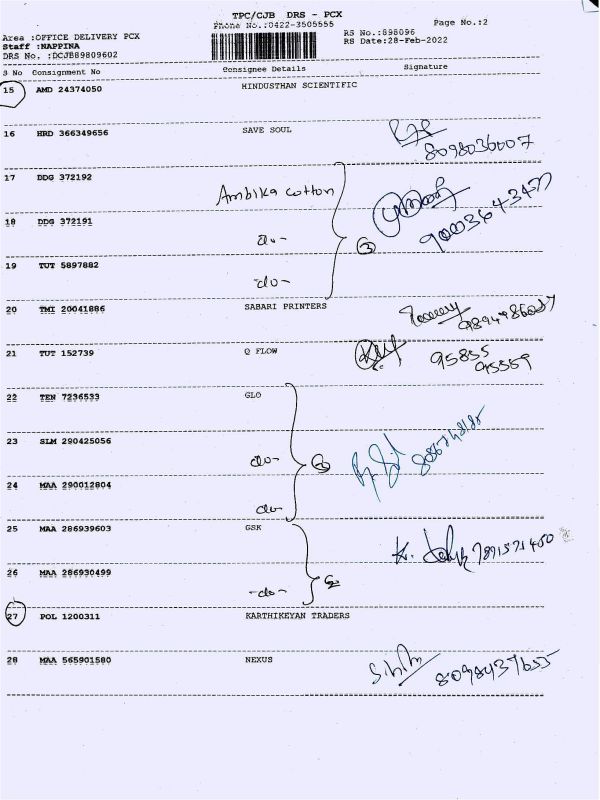 TPC/CJB DRS - PCX
Phone No.:0422-3505555 Page No.:2
Area :OFFICE DELIVERY PCX RS No.:898096
Staff :NAPPINA RS Date:28-Feb-2022
DRS No. :DCJB89809602
S No Consignment No Consignee Details Signature
15 AMD 24374050 HINDUSTHAN SCIENTIFIC
16 HRD 366349656 SAVE SOUL
8098036007
17 DDG 372192 Ambika cotton
18 DDG 372191 do-
3
9003643477
19 TUT 5897882 -do-
20 TMI 20041886 SABARI PRINTERS
21 TUT 152739 Q FLOW 95855
95559
22 TEN 7236533 GLO
23 SLM 290425056 do-
3
24 MAA 290012804 do-
25 MAA 286939603 GSK
7871571450
26 MAA 286930499 -do- 2
27 POL 1200311 KARTHIKEYAN TRADERS
28 MAA 565901580 NEXUS 8098437655